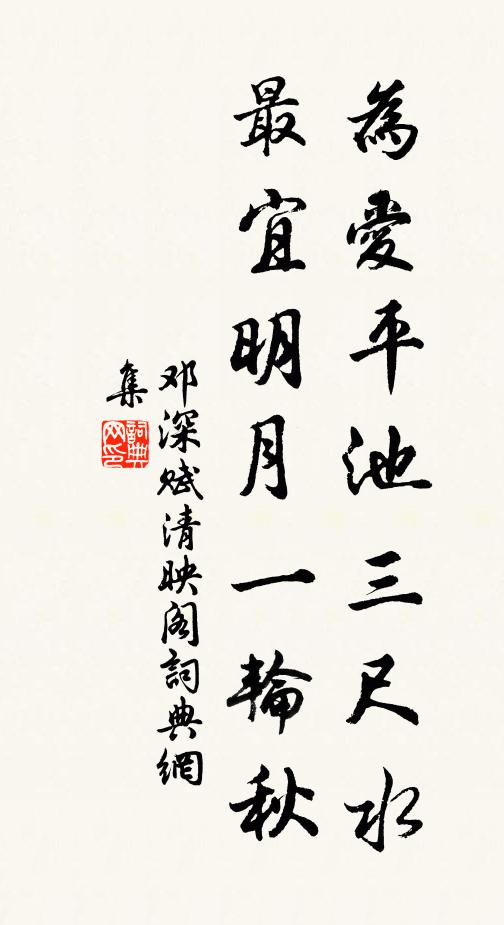 為愛平池三尺水
最宜明月一輪秋
邓深賦清映阁詞典網
集
詞典网印